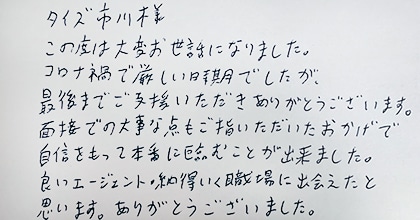 タイズ市川様
この度は大変お世話になりました。
コロナ禍で厳しい時期でしたが、
最後までご支援いただきありがとうございます。
面接での大事な点もご指いただいたおかげで
自信をもって本番に臨むことが出来ました。
良いエージェント・納得いく職場に出会えたと
思います。ありがとうございました。